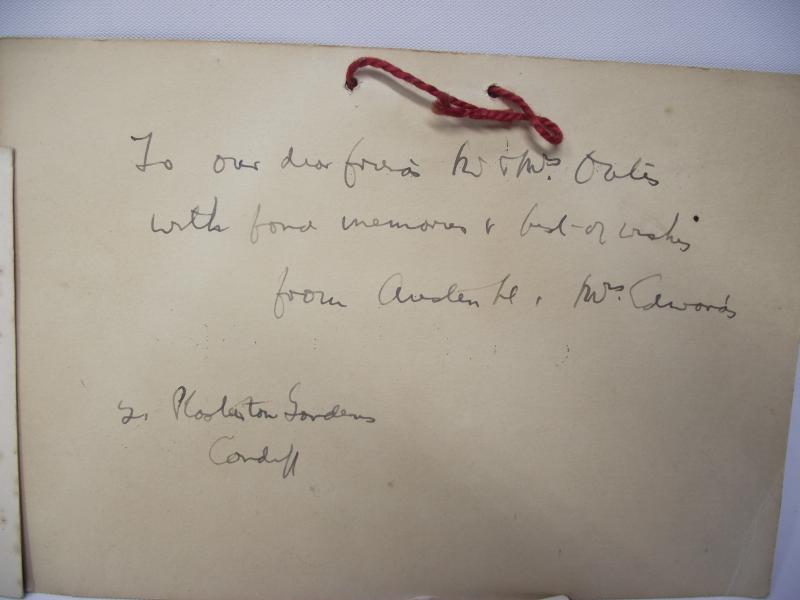 To our dear friends Mr & Mrs. Oates
with fond memories & best of wishes
from Austen & Mrs. Edwards
Plasturton Gardens
Cardiff